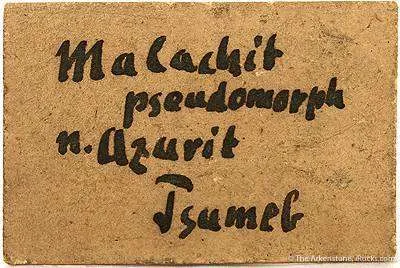 Malachit
pseudomorph
n. Azurit
Tsumeb
© The Arkenstone, iRocks.com